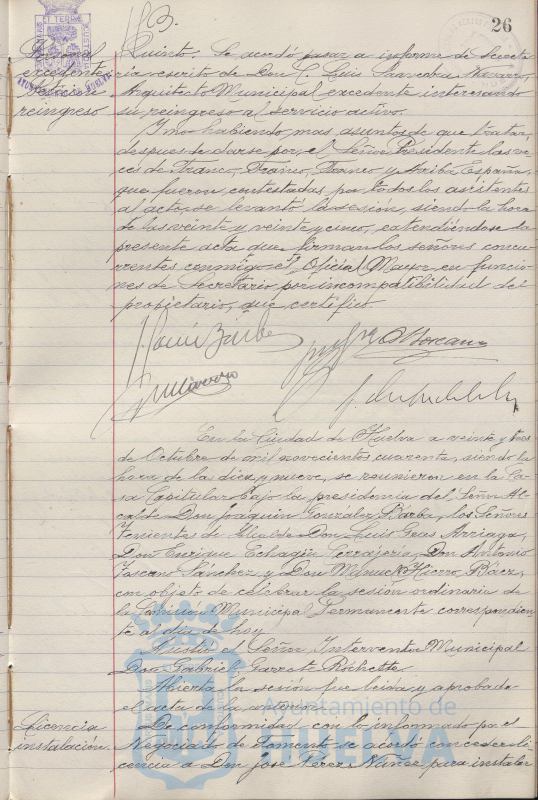 26
Personal
excedente
peticion
reingreso
Quinto. Se acordó pasar a informe de Secreta
ria escrito de Don Luis Saavedra Navarro,
Arquitecto Municipal excedente interesando
su reingreso al servicio activo.
Y no habiendo mas asuntos de que tratar,
despues de darse por el Señor Presidente las vo-
ces de Franco, Franco, Franco y Arriba España,
que fueron contestadas por todos los asistentes
al acto, se levantó la sesión, siendo la hora
de las veinte y veinte y cinco, extendiéndose la
presente acta que firman los señores concu-
rrentes conmigo el Oficial Mayor en funcio
nes de Secretario por incompatibilidad del
propietario, que certifico
En la Ciudad de Huelva a veinte y tres
de Octubre de mil novecientos cuarenta, siendo la
hora de las diez y nueve, se reunieron en la Ca
sa Capitular bajo la presidencia del Señor Al-
calde Don Joaquin Gonzalez Barba, los Señores
Tenientes de Alcalde Don Luis Arriaga,
Don Enrique Echagüe Don Antonio
Toscano Sánchez y Don Manuel Hierro Báez,
con objeto de celebrar la sesión ordinaria de
la Comision Municipal Permanente correspondien
te al dia de hoy
Asistio el Señor Interventor Municipal
Don Gabriel Garrote
Abierta la sesión fue leida y aprobada
el acta de la anterior
Licencia
instalación.
De conformidad con lo informado por el
Negociado de Fomento se acordó conceder li
cencia a Don José Perez Nuñez para instalar
Ayuntamiento de
HUELVA